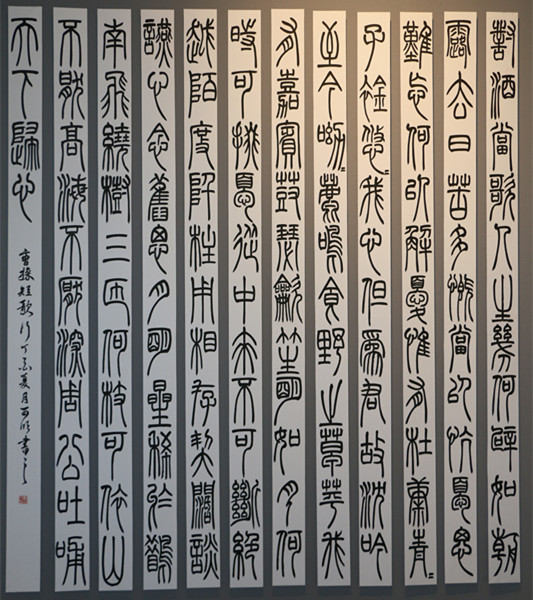 對酒當歌人生幾何譬如朝
露去日苦多慨當以忼憂思
難忘何以解憂惟有杜康青〻
子衿悠〻我心但為君故沈吟
至今呦〻鹿鳴食野之苹我
有嘉賓鼓瑟龡笙明如月何
時可掇憂從中來不可斷絕
越陌度阡枉用相存契闊談
讌心念舊恩月明星稀於鵲
南飛繞樹三匝何枝可依山
不厭高海不厭深周公吐哺
天下歸心
曹操短歌行 丁酉夏月 書之